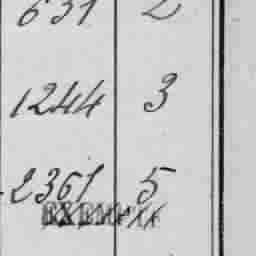 631 2
1244 3
2361 5